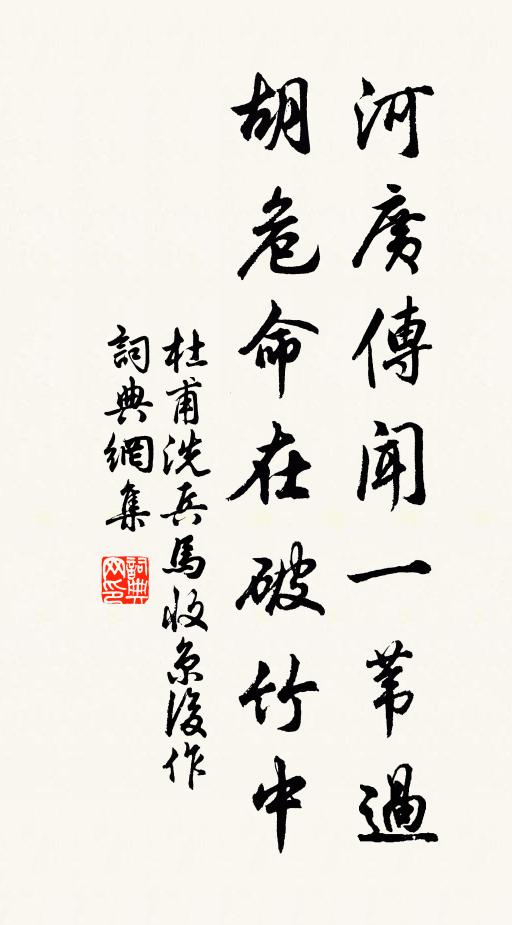 河廣傳聞一葦過
胡危命在破竹中
杜甫洗兵馬收京後作
詞典網集
詞典网印